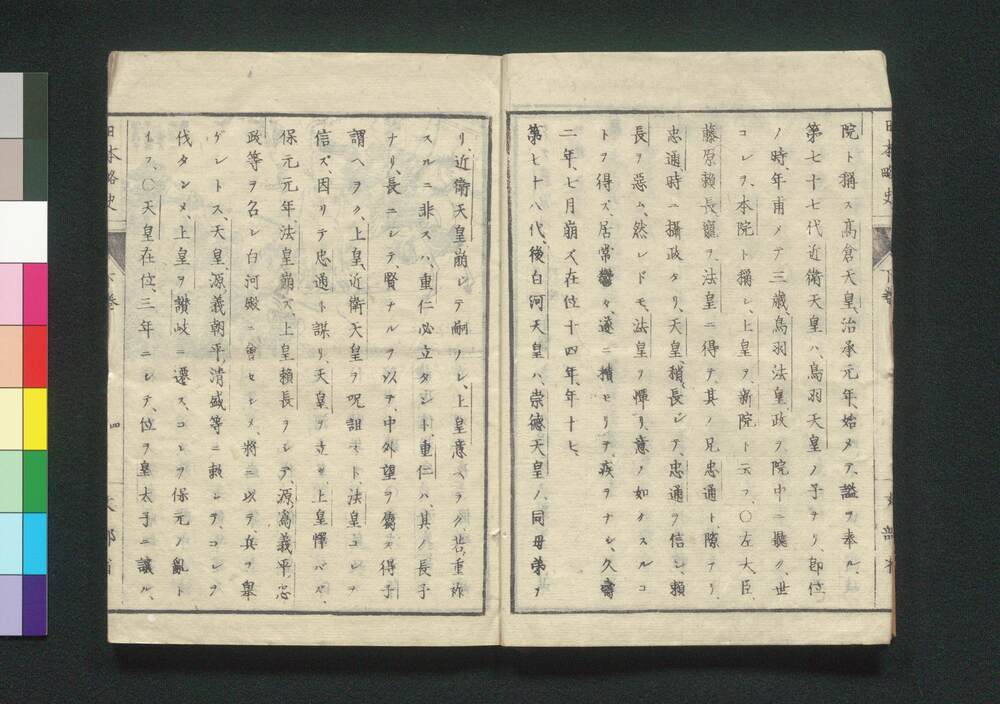 院ト稱ス、高倉天皇、治承元年、始メテ、謚ヲ奉ル、
第七十七代近衛天皇ハ、鳥羽天皇ノ子ナリ、卽位
ノ時、年甫メテ三歳、鳥羽法皇、政ヲ院中ニ聽ク、世
コレヲ、本院ト稱シ、上皇ヲ、新院ト云フ、〇左大臣、
藤原賴長、寵ヲ、法皇ニ得テ、其ノ兄忠通ト、隙アリ、
忠通、時ニ攝政タリ、天皇、稍、長シテ、忠通ヲ信シ、賴
長ヲ惡ム、然レドモ、法皇ヲ憚リ、意ノ如クスルコ
トヲ得ズ、居常鬱々、遂ニ積モリテ、疾ヲナシ、久壽
二年、七月崩ズ、在位十四年、年十七、
第七十八代、後白河天皇ハ、崇德天皇ノ、同母弟ナ
リ、近衛天皇崩シテ嗣ナシ、上皇意ヘラク、吾、重祚
スルニ非ズハ、重仁必立タント、重仁ハ、其ノ長子
ナリ、長ニシテ、賢ナルヲ以テ、中外望ヲ屬ス、得子
謂ヘラク、上皇、近衛天皇ヲ呪詛スト、法皇コレヲ
信ズ、因リテ忠通ト謀リ、天皇ヲ立ツ、上皇懌バズ、
保元元年、法皇崩ズ、上皇賴長ヲシテ、源爲義、平忠
政等ヲ召シ白河殿ニ會セシメ、將ニ以テ、兵ヲ擧
ゲントス、天皇、源義朝、平清盛等ニ敕シテ、コレヲ
伐タシメ、上皇ヲ讃岐ニ遷ス、コレヲ保元ノ亂ト
イフ、〇天皇在位、三年ニシテ、位ヲ皇太子ニ讓ル、
日本略史
下卷
四
文部省